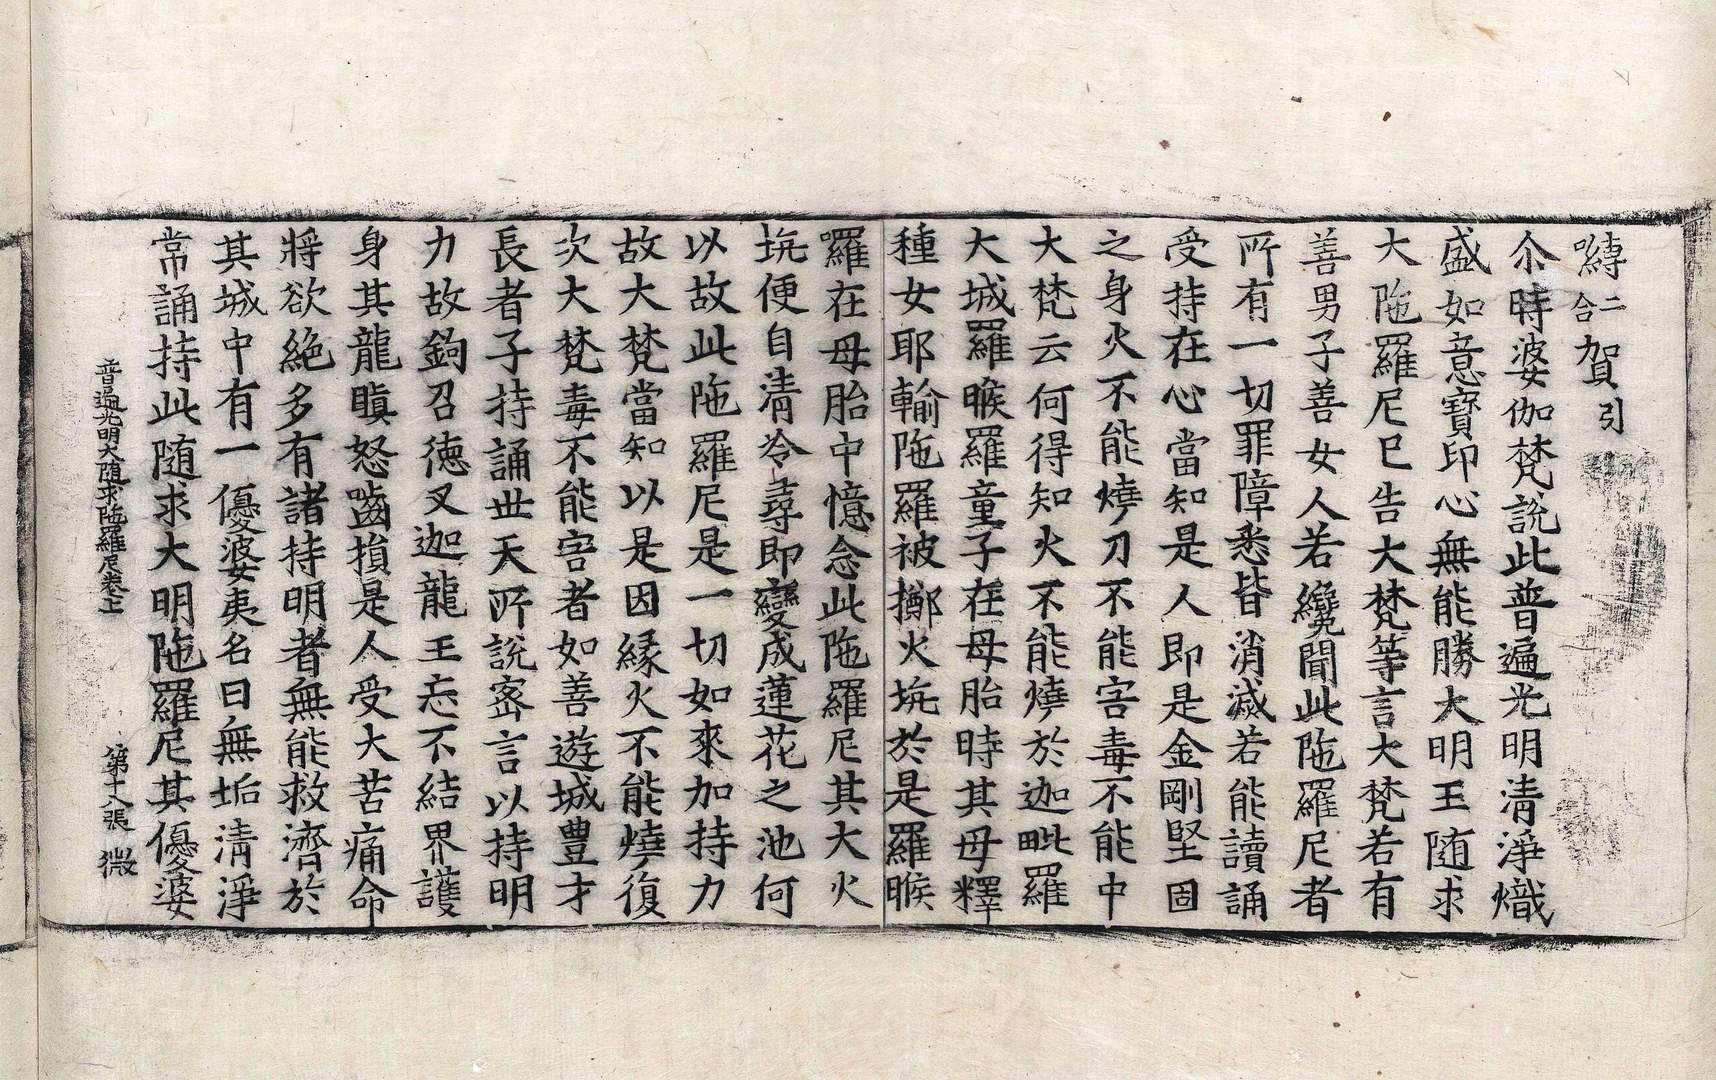 嚩二合賀引
尒時婆伽梵說此普遍光明清淨熾
盛如意寶印心無能勝大明王随求
大陁羅尼已告大梵等言大梵若有
善男子善女人若纔聞此陁羅尼者
所有一切罪障悉皆消滅若能讀誦
受持在心當知是人即是金剛堅固
之身火不能燒刀不能害毒不能中
大梵云何得知火不能燒於迦毗羅
大城羅睺羅童子在母胎時其母釋
種女耶輸陁羅被擲火坑於是羅睺
羅在母胎中憶念此陁羅尼其大火
坑便自清冷尋即變成蓮花之池何
以故此陁羅尼是一切如來加持力
故大梵當知以是因緣火不能燒復
次大梵毒不能害者如善遊城豊才
長者子持誦世天所說密言以持明
力故鉤召德叉迦龍王忘不結界護
身其龍瞋怒齧損是人受大苦痛命
將欲絕多有諸持明者無能救濟於
其城中有一優婆夷名曰無垢清淨
常誦持此随求大明陁羅尼其優婆
普遍光明大随求陁羅尼卷上 第十八張 微